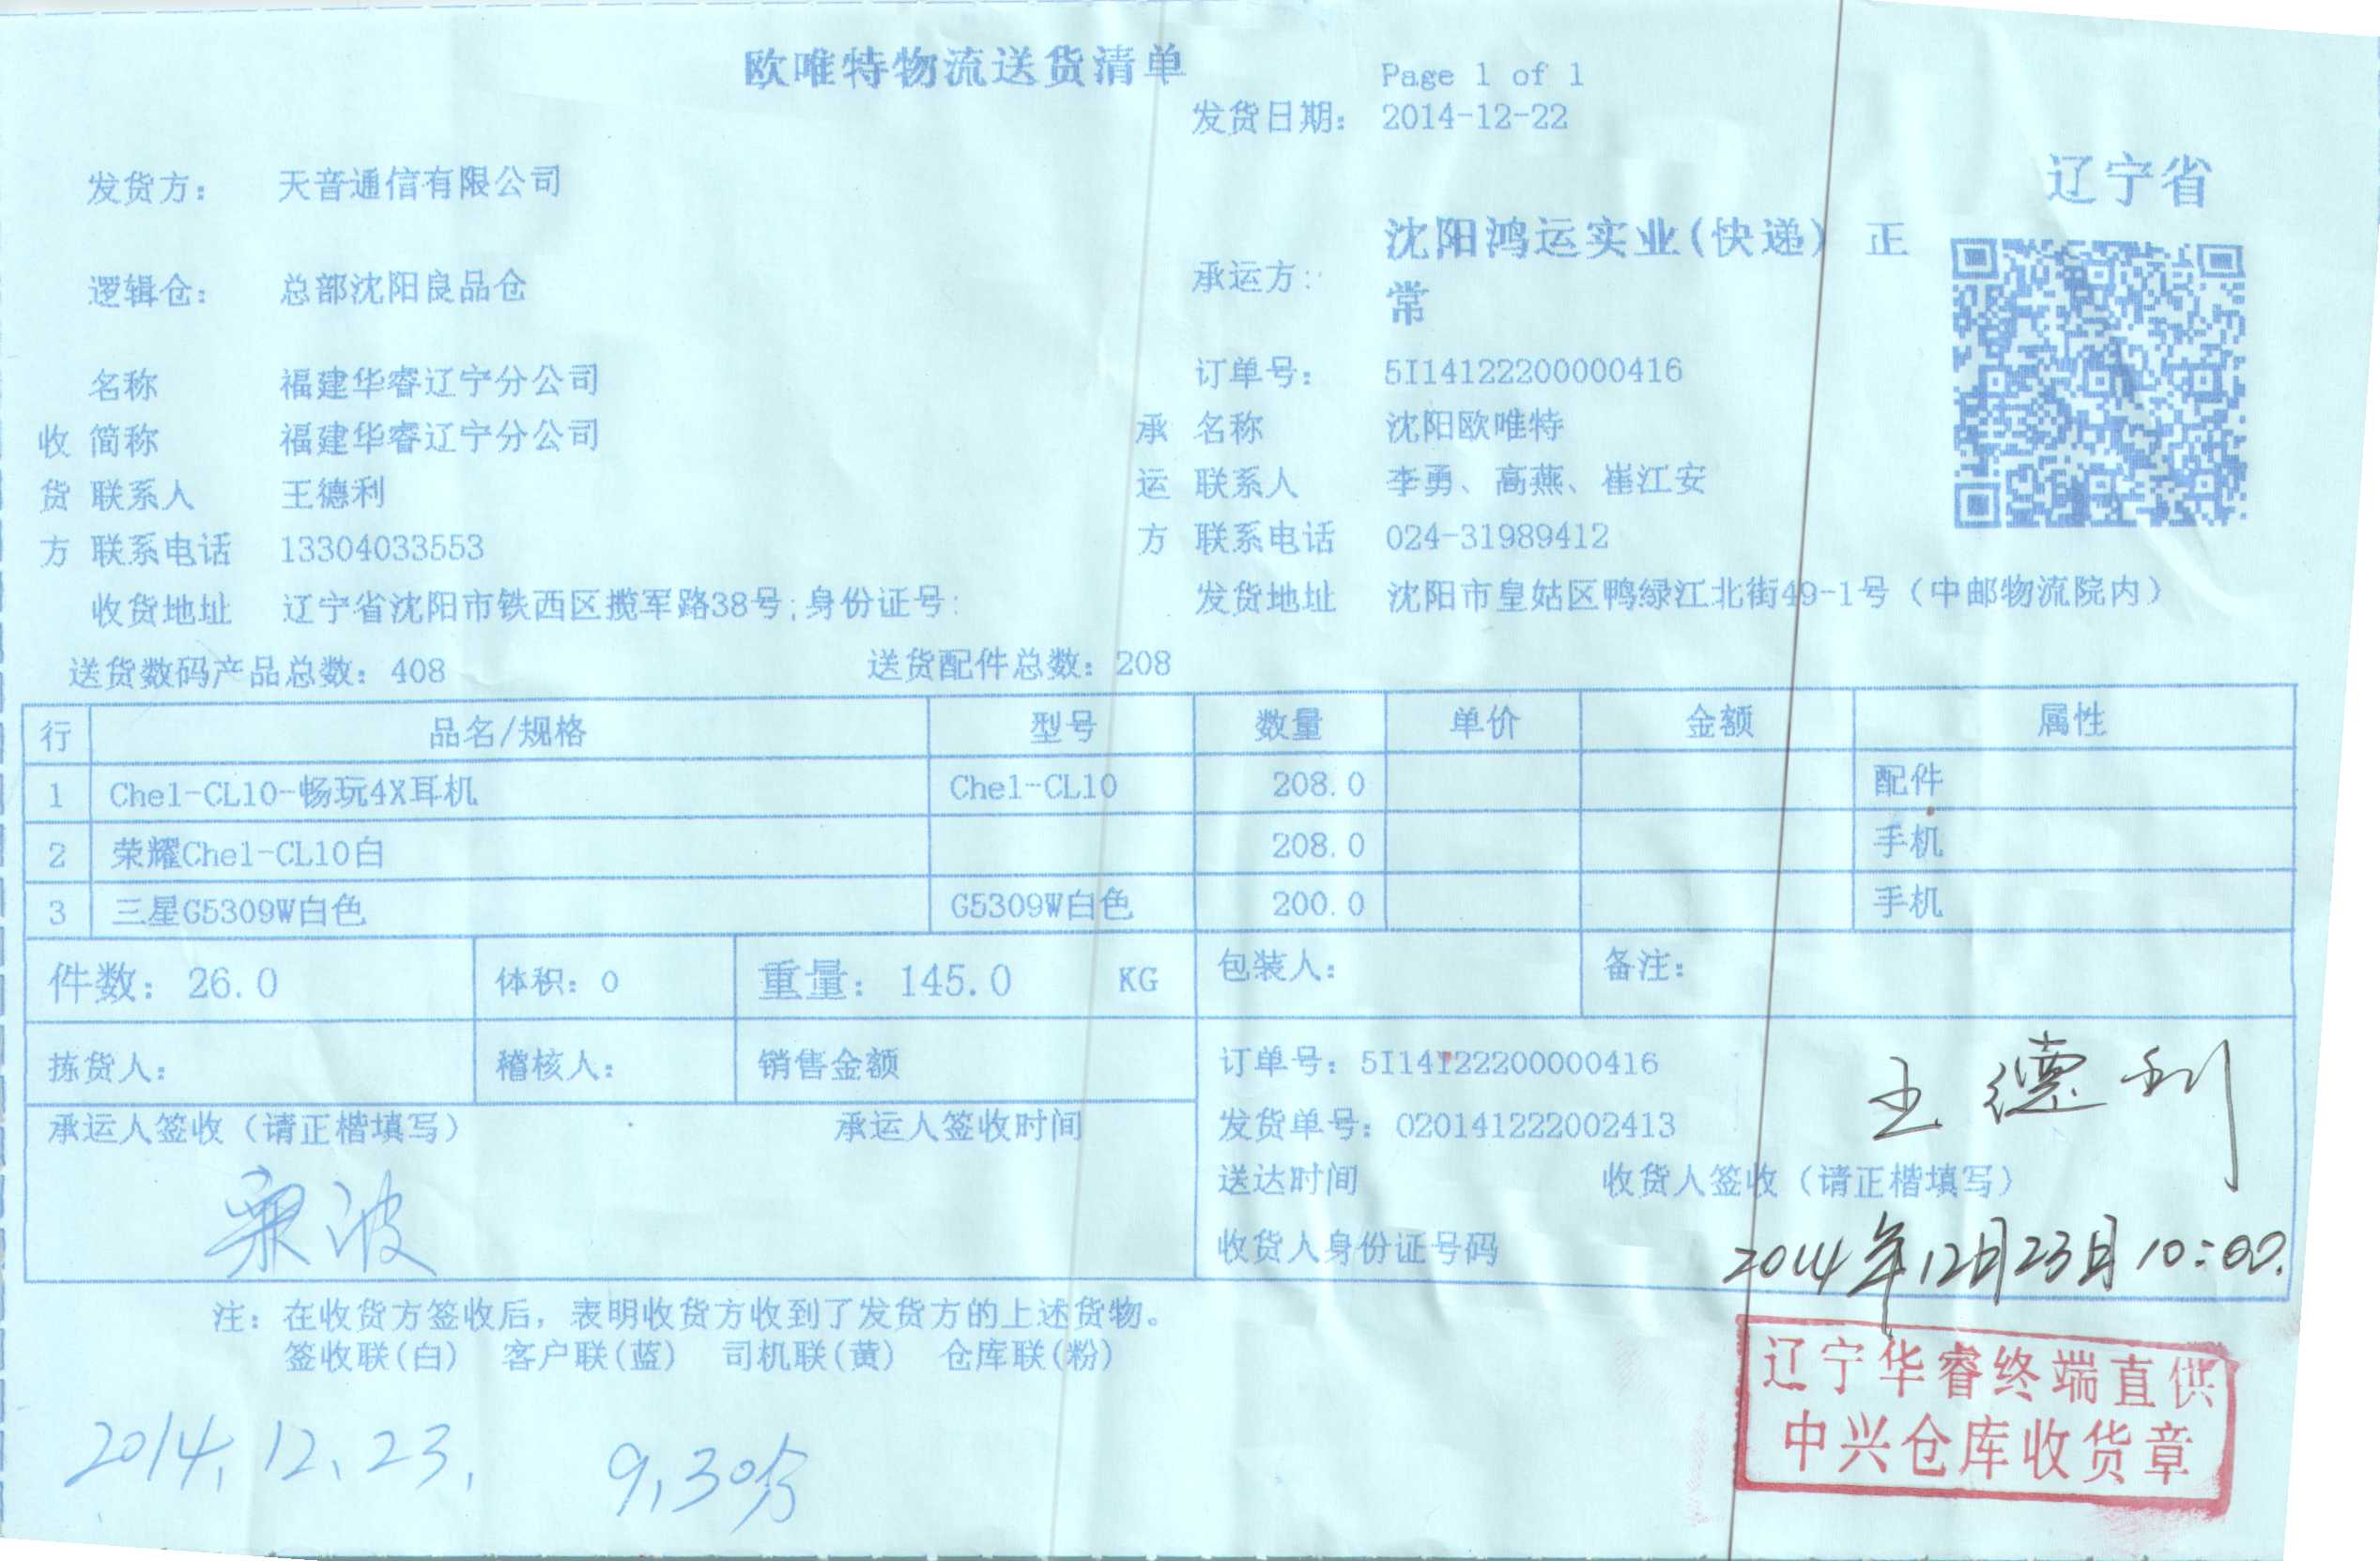 欧唯特物流送货清单
Page 1 of 1
发货日期: 2014-12-22
辽宁省
发货方: 天音通信有限公司
承运方: 沈阳鸿运实业(快递) 正常
逻辑仓: 总部沈阳良品仓
名称 福建华睿辽宁分公司 订单号: 5I14122200000416
收 简称 福建华睿辽宁分公司 承 名称 沈阳欧唯特
货 联系人 王德利 运 联系人 李勇、高燕、崔江安
方 联系电话 13304033553 方 联系电话 024-31989412
收货地址 辽宁省沈阳市铁西区揽军路38号;身份证号: 发货地址 沈阳市皇姑区鸭绿江北街49-1号（中邮物流院内）
送货数码产品总数: 408 送货配件总数: 208
行 品名/规格 型号 数量 单价 金额 属性
1 Che1-CL10-畅玩4X耳机 Che1-CL10 208.0 配件
2 荣耀Che1-CL10白 208.0 手机
3 三星G5309W白色 G5309W白色 200.0 手机
件数: 26.0 体积: 0 重量: 145.0 KG 包装人: 备注:
拣货人: 稽核人: 销售金额 订单号: 5I14122200000416
王德利
承运人签收（请正楷填写） 承运人签收时间 发货单号: O20141222002413
送达时间 收货人签收（请正楷填写）
波
收货人身份证号码 2014年12月23日10:00.
注: 在收货方签收后, 表明收货方收到了发货方的上述货物。
签收联(白) 客户联(蓝) 司机联(黄) 仓库联(粉)
辽宁华睿终端直供
中兴仓库收货章
2014.12.23. 9.30分